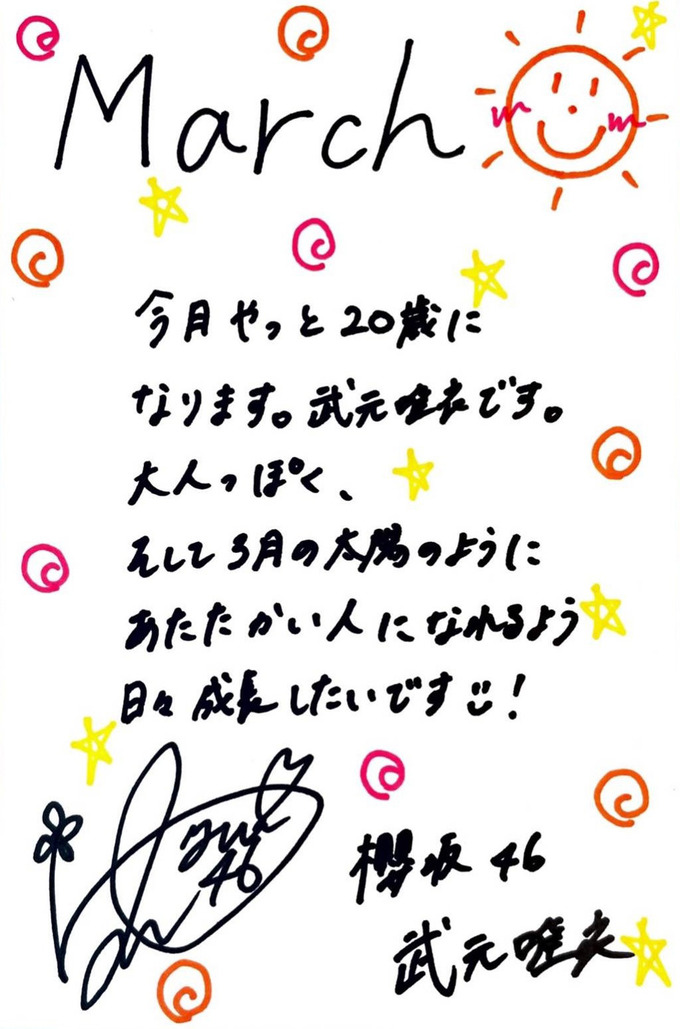 March
今月やっと20歳に
なります。武元唯衣です。
大人っぽく、
そして3月の太陽のように
あたたかい人になれるよう
日々成長したいです!
yui
46
櫻坂46
武元唯衣